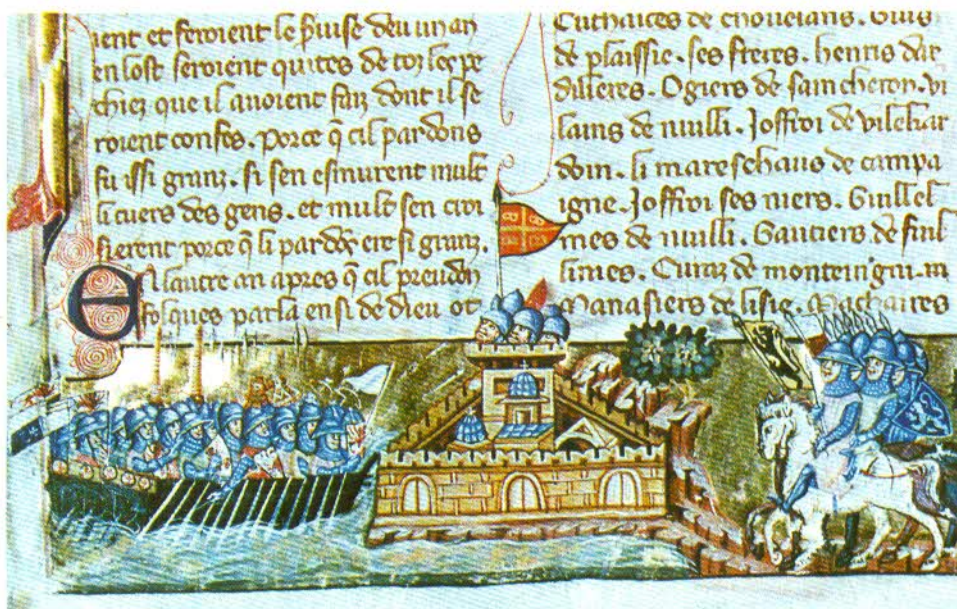 ient et feroient le ſeruiſe deu un an
en loſt ſeroient quites de toz lor pe
chiez que il auoient faiz dont il ſe
roient confes. Porce q̄ cil pardons
fu iſſi granz. ſi ſen eſmurent mult
li cuers des gens. et mult ſen croi
ſierent porce q̄ li pardōs ere ſi granz.
En lautre an apres q̄ cil preudon
folques parla enſi de dieu ot
de plaiſſie. ſes freres. henris dar
dilieres. Ogiers de ſaincheron. vi
lains de nuilli. Joffroi de vilehar
doin. li mareſchaus de campa
igne. Joffroi ſes niers. Guillel
mes de nuilli. Gautiers de fuil
limes. de monteingni. m
Manaſiers de liſle. Machaires